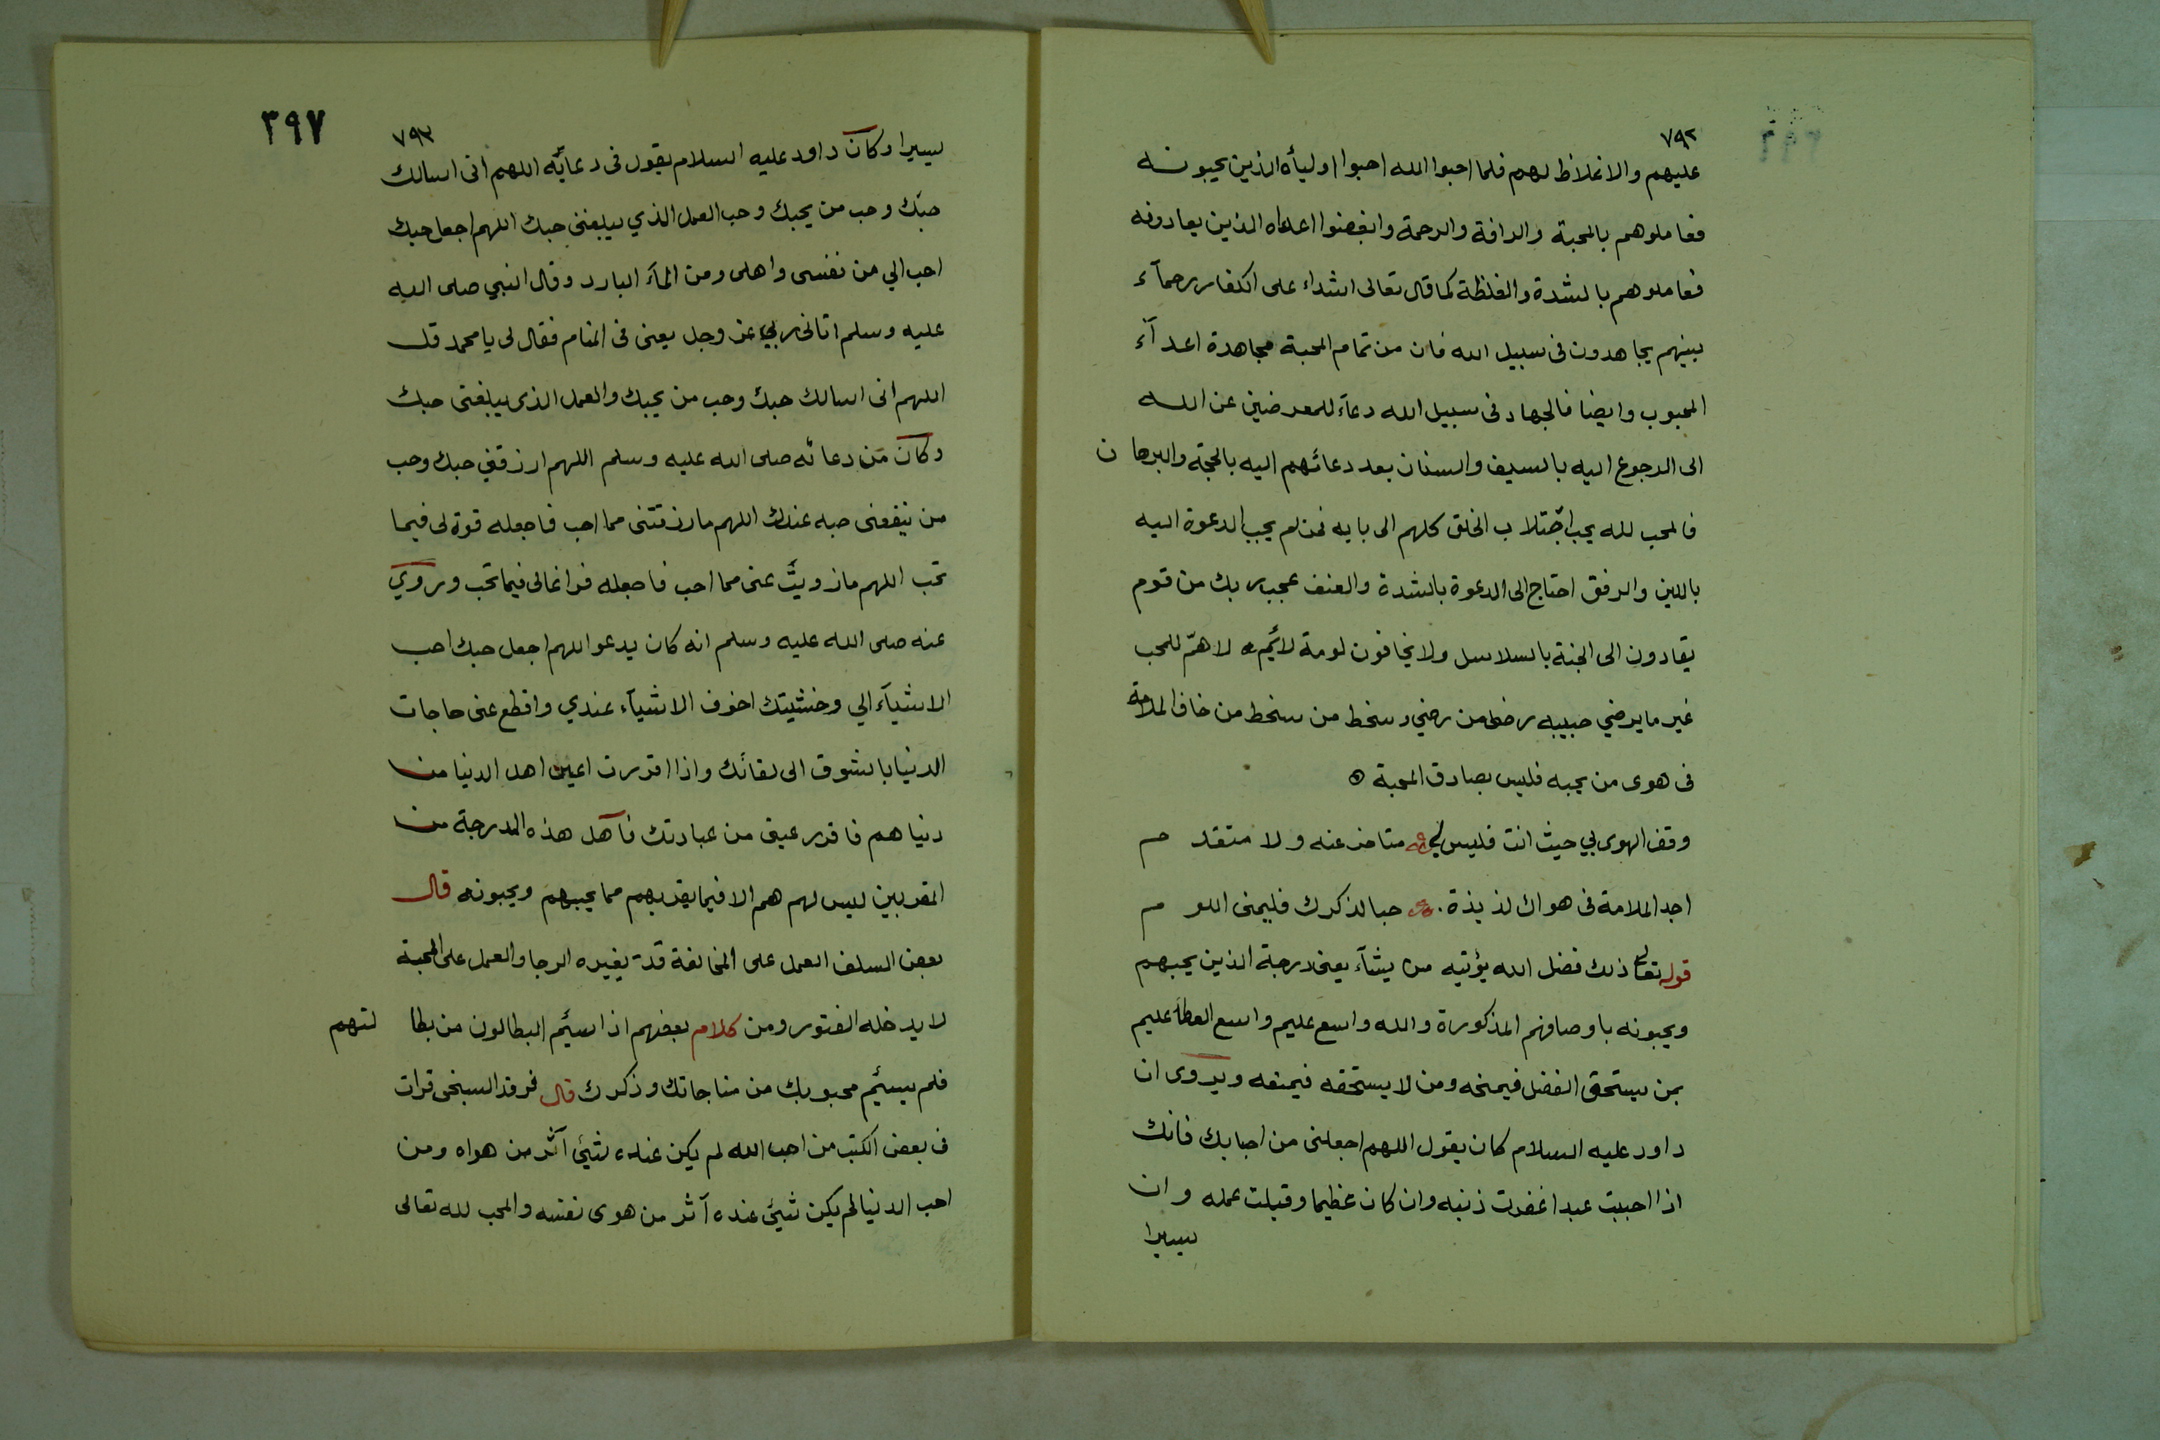 ٧٩٢
عليهم والاغلاظ لهم فلما احبوا الله احبوا اوليأه الذين يحبونه
فعاملوهم بالمحبة والرافة والرحمة وابغضوا اعداه الذين يعادونه
فعاملوهم بالشدة والغلظة كما قال تعالى اشداء على الكفار رحمآء
بينهم يجاهدون فى سبيل الله فان من تمام المحبة مجاهدة اعدآء
المحبوب وايضا فالجهاد فى سبيل الله دعآء للمعرضين عن الله
الى الرجوع اليه بالسيف والسنان بعد دعائهم اليه بالحجة والبرهان
فالمحب لله يحب اجتلاب الخلق كلهم الى بابه فمن لم يجب الدعوة اليه
باللين والرفق احتاج الى الدعوة بالشدة والعنف عجب ربك من قوم
يقادون الى الجنة بالسلاسل ولا يخافون لومة لائيم لا همّ للمحب
غير ما يرضي حبيبه رضى من رضي وسخط من سخط من خاف الملامة
فى هوى من يحبه فليس بصادق المحبة
وقف الهوى بي حيث انت فليس لي متاخر عنه ولا متقدم
اجد الملامة فى هواك لذيذة حبا لذكرك فليمنى اللوم
قوله تعالى ذلك فضل الله يؤتيه من يشآء يعنى درجة الذين يحبهم
ويحبونه باوصافهم المذكورة والله واسع عليم واسع العطآ عليم
بمن يستحق الفضل فيمنحه ومن لا يستحقه فيمنعه ويروى ان
داود عليه السلام كان يقول اللهم اجعلنى من احبابك فانك
اذا احببت عبدا غفرت ذنبه وان كان عظيما وقبلت عمله وان
يسيرا
٣٩٧
٧٩٣
يسيرا وكان داود عليه السلام يقول فى دعائه اللهم انى اسالك
حبّك وحب من يحبك وحب العمل الذي يبلغنى حبك اللهم اجعل حبك
احب الي من نفسى واهلى ومن المآء البارد وقال النبي صلى الله
عليه وسلم اتانى ربي عز وجل يعنى فى المنام فقال لى يا محمد قل
اللهم انى اسالك حبك وحب من يحبك والعمل الذى يبلغنى حبك
وكان من دعائه صلى الله عليه وسلم اللهم ارزقني حبك وحب
من ينفعنى حبه عندك اللهم ما رزقتنى مما احب فاجعله قوة لى فيما
تحب اللهم ما زويت عنى مما احب فاجعله فراغا لى فيما تحب وروي
عنه صلى الله عليه وسلم انه كان يدعو اللهم اجعل حبك احب
الاشيآء الي وخشيتك اخوف الاشيآء عندي واقطع عنى حاجات
الدنيا بالشوق الى لقائك واذا اقررت اعين اهل الدنيا من
دنياهم فاقرر عينى من عبادتك فآهل هذه الدرجة من
المقربين ليس لهم هم الا فيما يقربهم مما يحبهم ويحبونه قال
بعض السلف العمل على المخافة قد يغيره الرجا والعمل على المحبة
لا يدخله الفتور ومن كلام بعضهم اذا سيئم البطالون من بطالتهم
فلم يسيئم محبوبك من مناجاتك وذكرك قال فرقد السبخى قرات
فى بعض الكتب من احب الله لم يكن عنده شيئ آثر من هواه ومن
احب الدنيا لم يكن شيئ عنده آثر من هوى نفسه والمحب لله تعالى